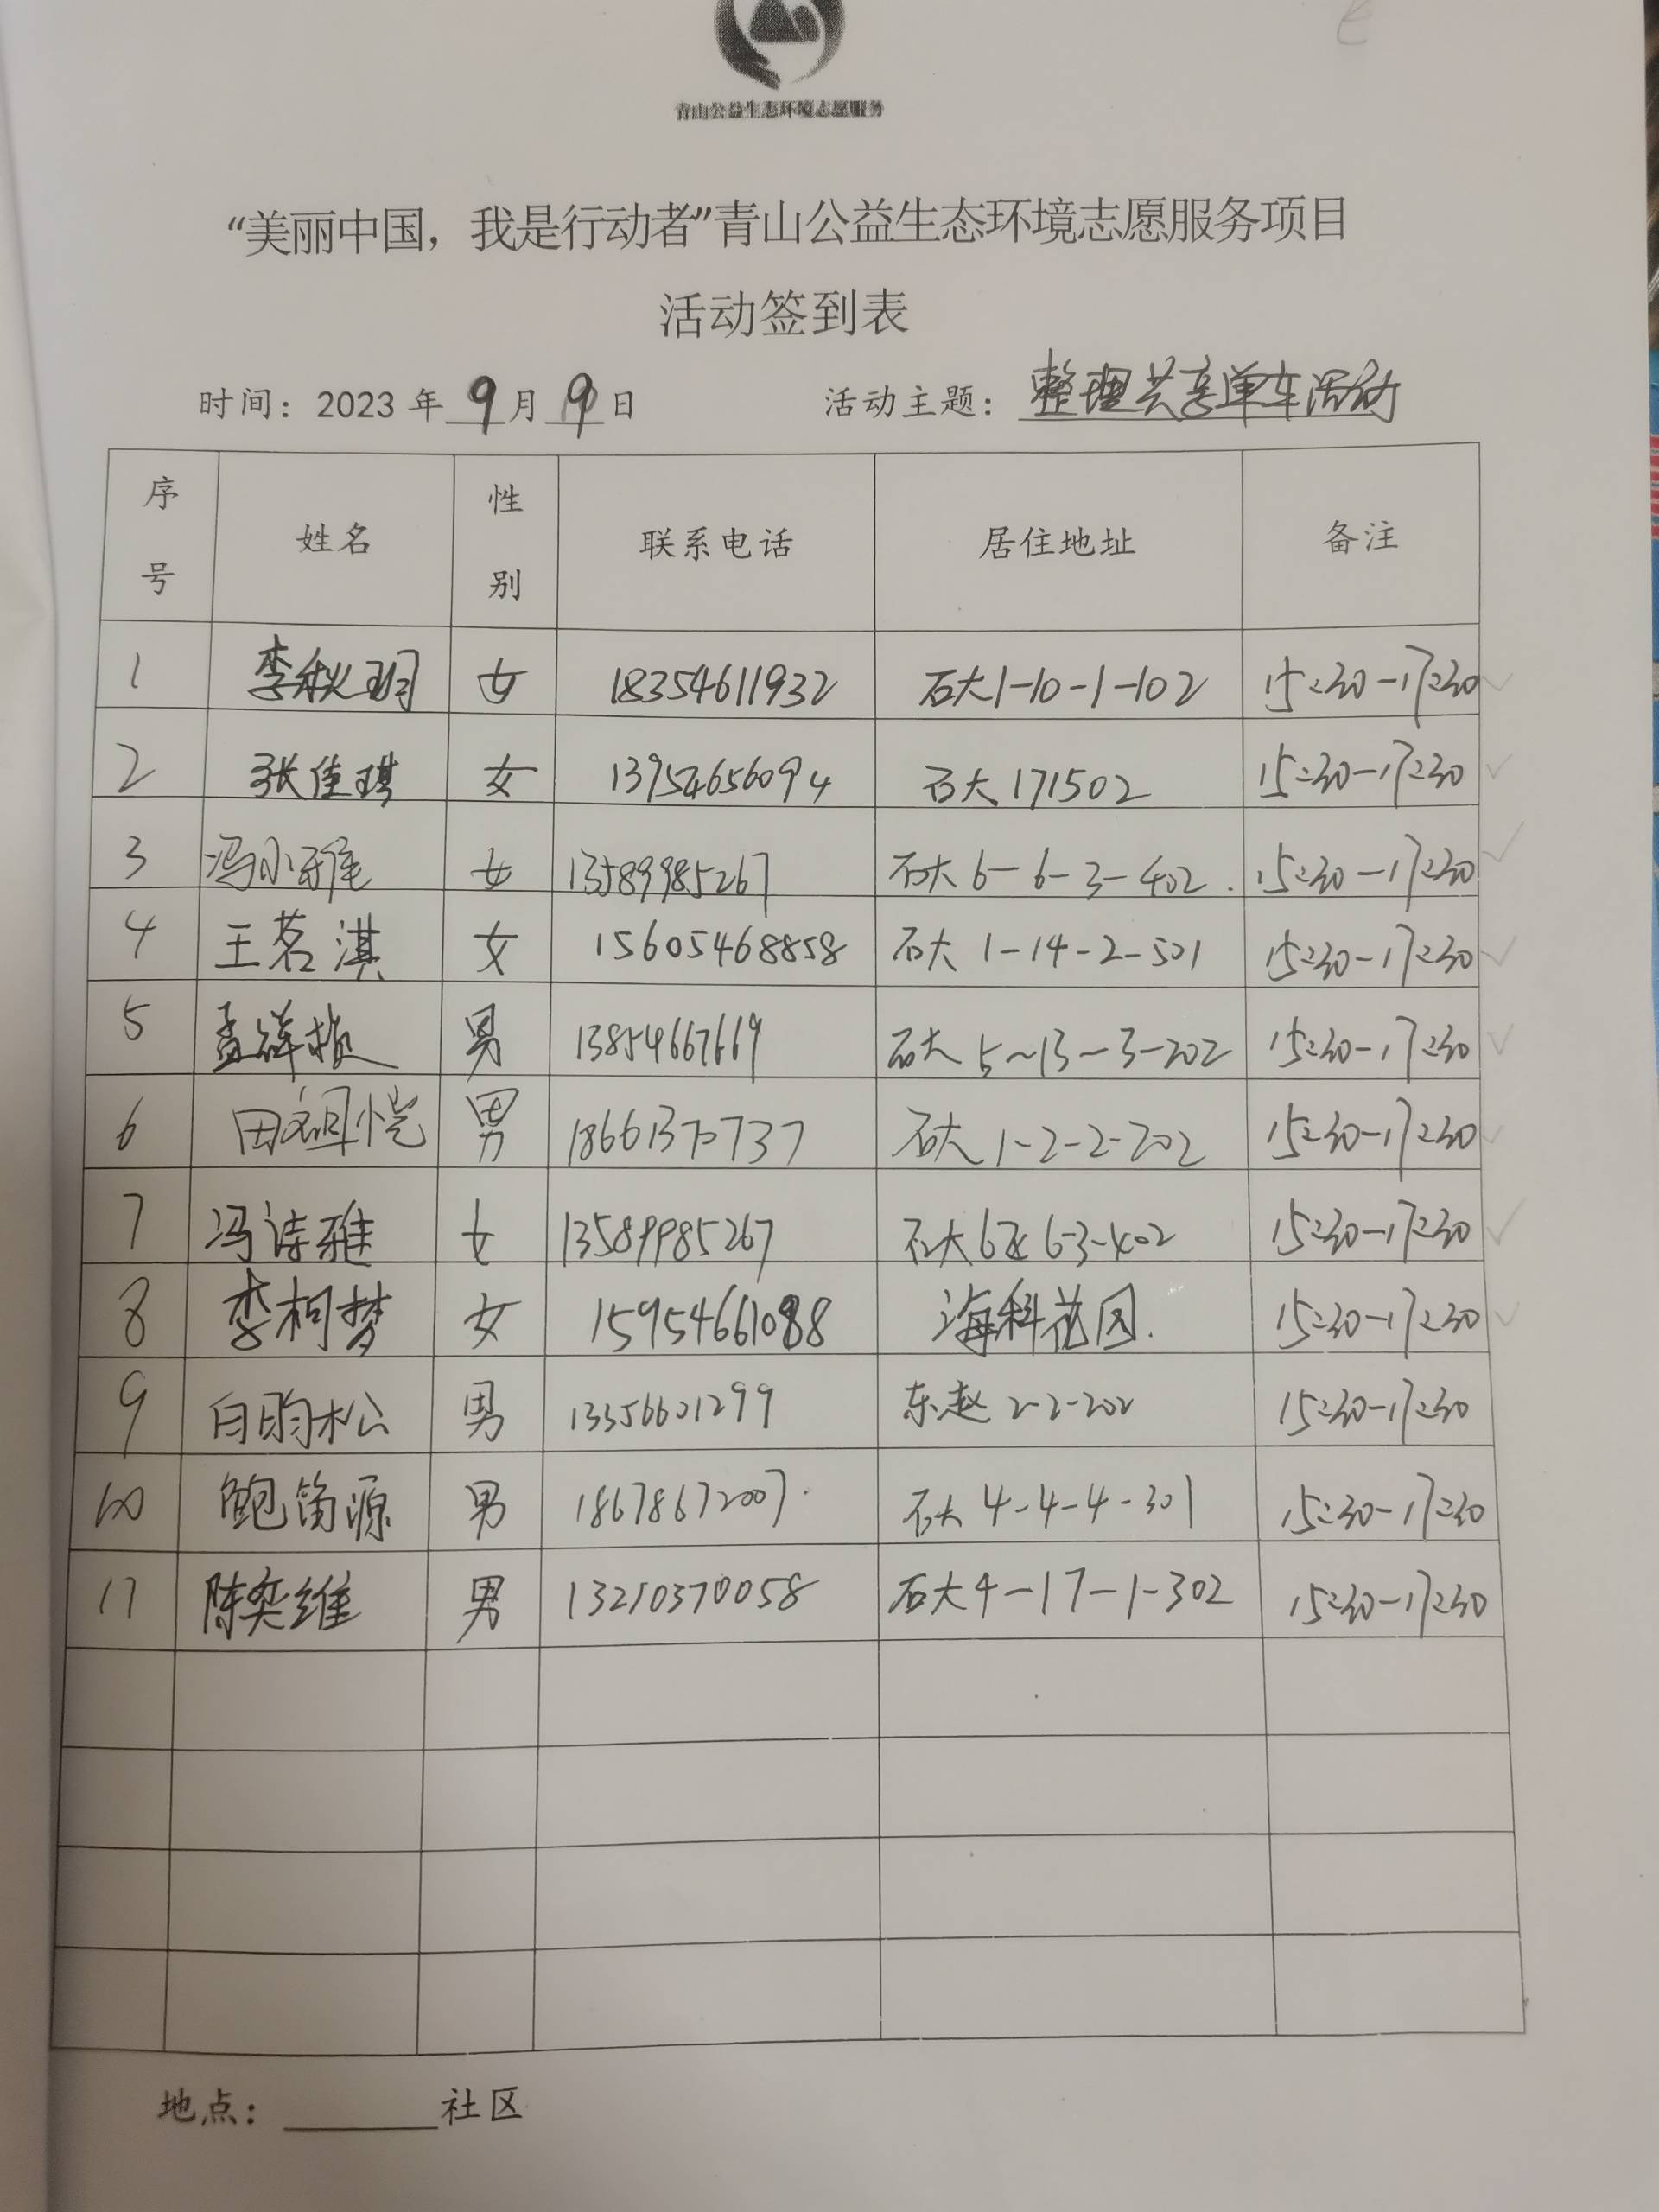 青山公益生态环境志愿服务
“美丽中国，我是行动者”青山公益生态环境志愿服务项目
活动签到表
时间：2023年 9 月 9 日 活动主题：整理共享单车活动
序号 姓名 性别 联系电话 居住地址 备注
1 李秋玥 女 18354611932 石大1-10-1-102 15:30-17:30
2 张佳琪 女 13954656094 石大171502 15:30-17:30
3 冯小雅 女 13589985267 石大6-6-3-402. 15:30-17:30
4 王茗淇 女 15605468858 石大1-14-2-501 15:30-17:30
5 孟祥 男 13854667669 石大5~13-3-202 15:30-17:30
6 田祖恺 男 1866137737 石大1-2-2-202 15:30-17:30
7 冯诗雅 女 13589985267 石大6区6-3-402 15:30-17:30
8 李柯梦 女 15954661088 海科花园. 15:30-17:30
9 白昀松 男 13356601299 东赵2-2-202 15:30-17:30
10 鲍笛源 男 18678672007. 石大4-4-4-301 15:30-17:30
11 陈奕维 男 13210370058 石大4-17-1-302 15:30-17:30
地点：______社区